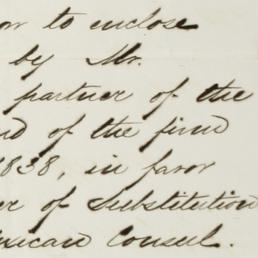 to enclose
by Mr.
partner of the
of the firm
1838, in favor
of Substitution
Consul.